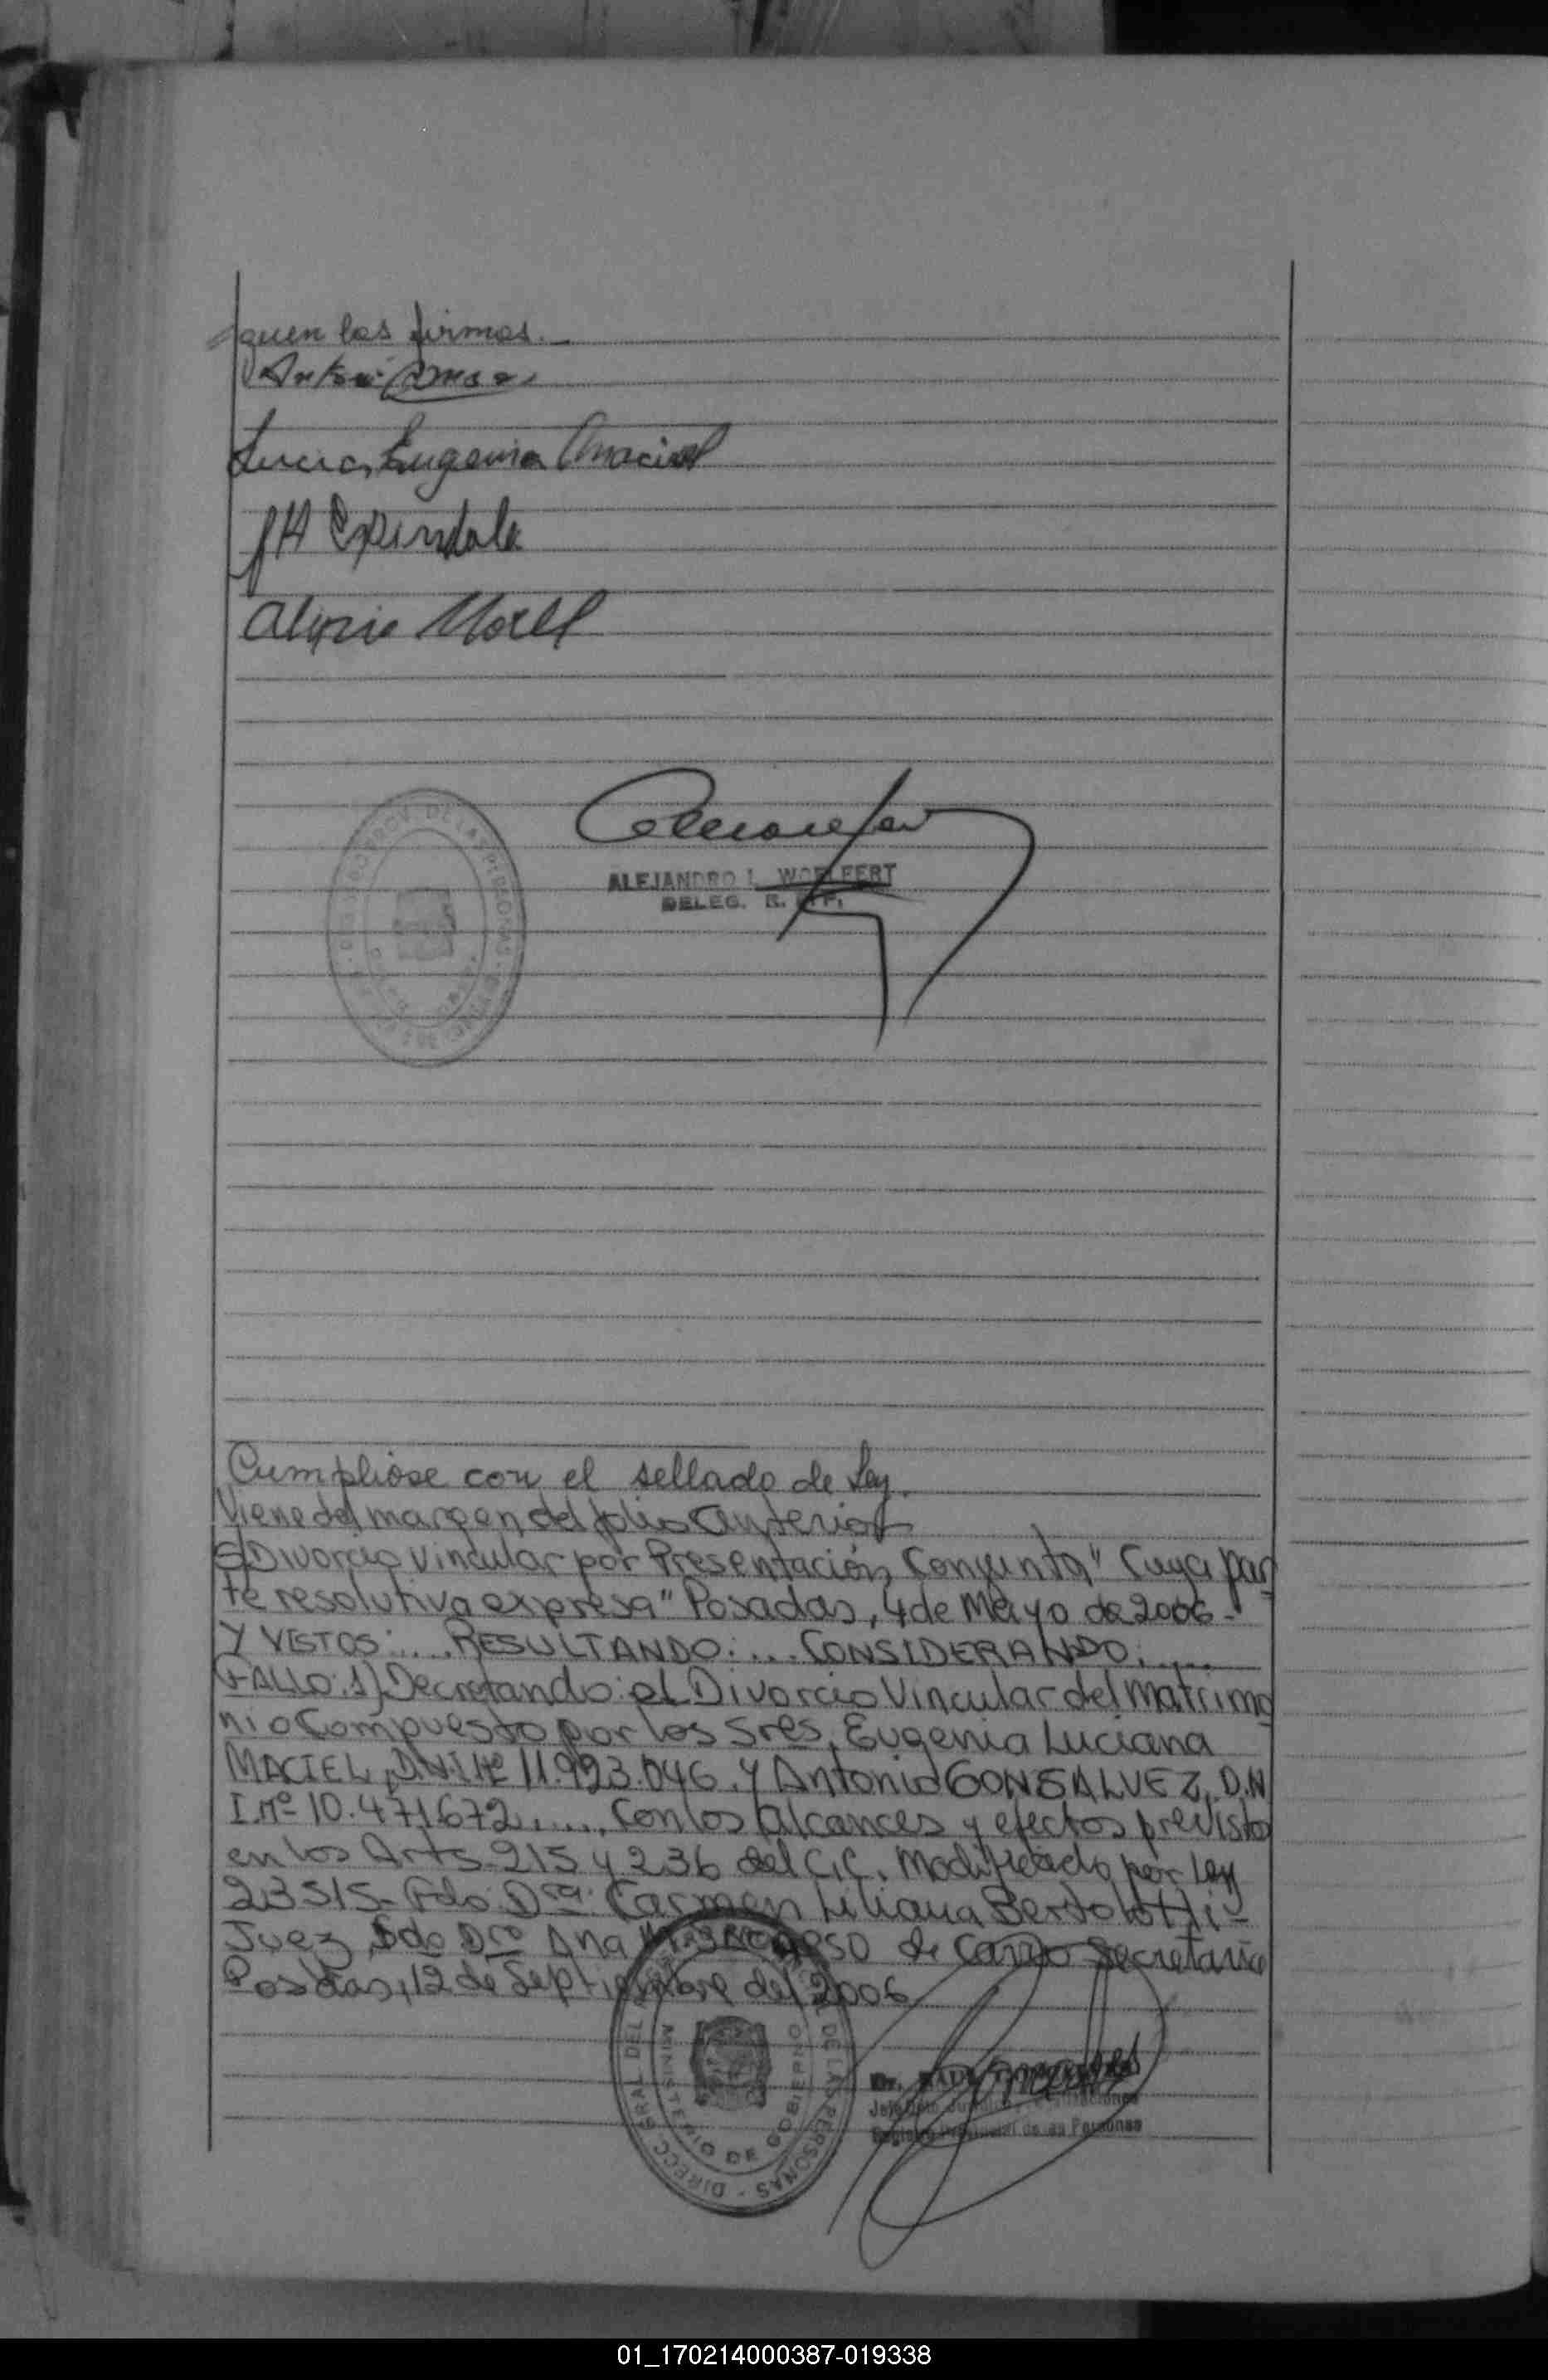 guen las firmas.
Eugenia Maciel
JH Espindola
ALEJANDRO I. WOELFERT
DELEG. R.
Cumplióse con el sellado de Ley.
Viene del margen del folio anterior
S/Divorcio Vincular por Presentación Conjunta" Cuya par
te resolutiva expresa "Posadas, 4 de Mayo de 2006.-
Y VISTOS:..... RESULTANDO:.... CONSIDERANDO:.....
FALLO: 1) Decretando el Divorcio Vincular del matrimo
nio compuesto por los Sres. Eugenia Luciana
MACIEL, D.N.I Nº 11.923.046. y Antonio GONSALVEZ, D.N
I. Nº 10.471672....., Con los alcances y efectos previsto
en los Arts. 215 y 236 del C.C. Modificado por Ley
23515- Fdo: Dra. Carmen Liliana Bertolotti-
Juez, Fdo Dra Ana de Cano Secretaria
Posadas, 12 de Septiembre del 2006
DIRECC GRAL DEL DE LAS PERSONAS
MINISTERIO DE GOBIERNO
Dr.
Registro Provincial de las Personas
01_170214000387-019338